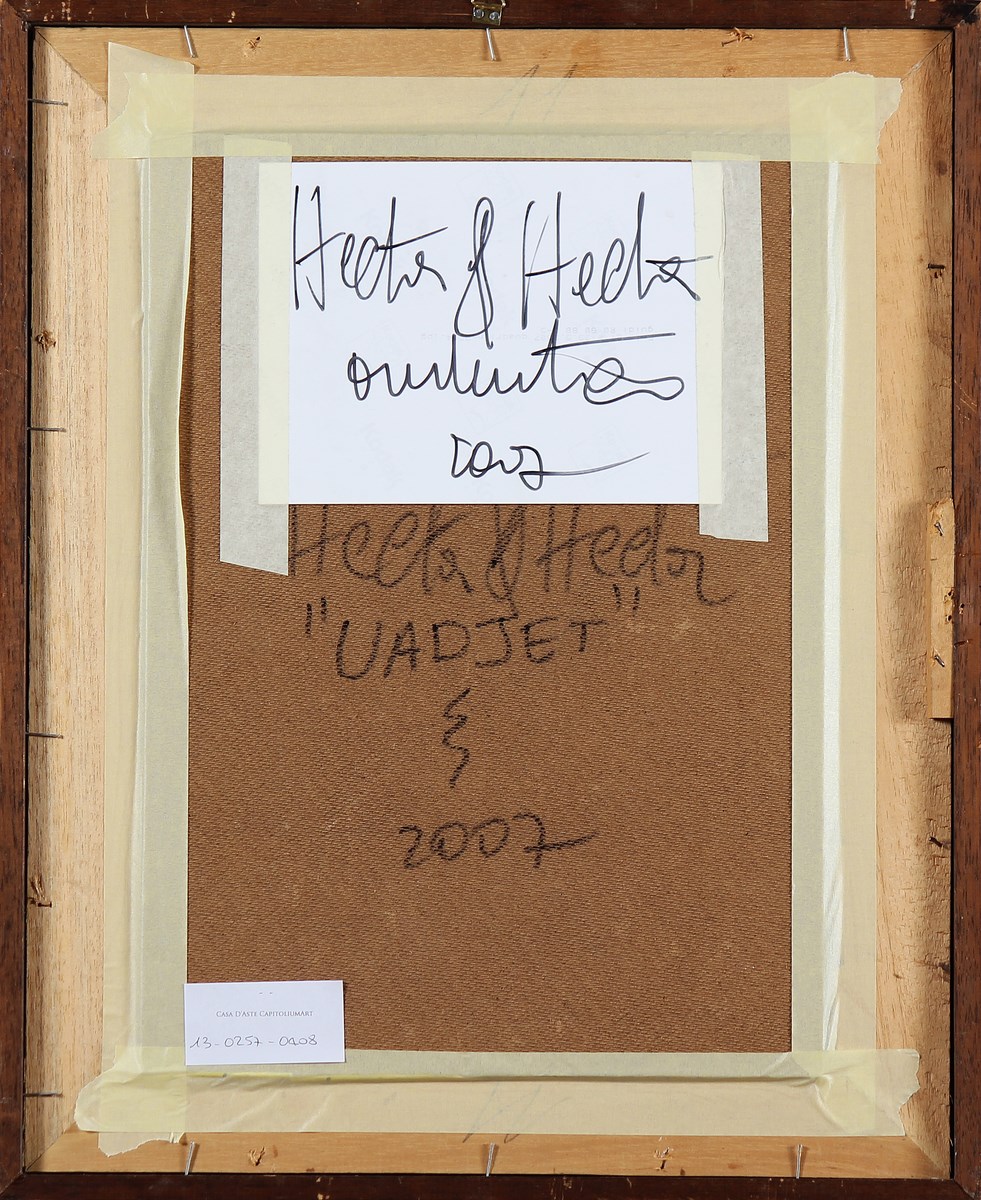 Hector & Hector
2007
Hector & Hector
"UADJET"
2007
CASA D'ASTE CAPITOLIUMART
13-0257-0408